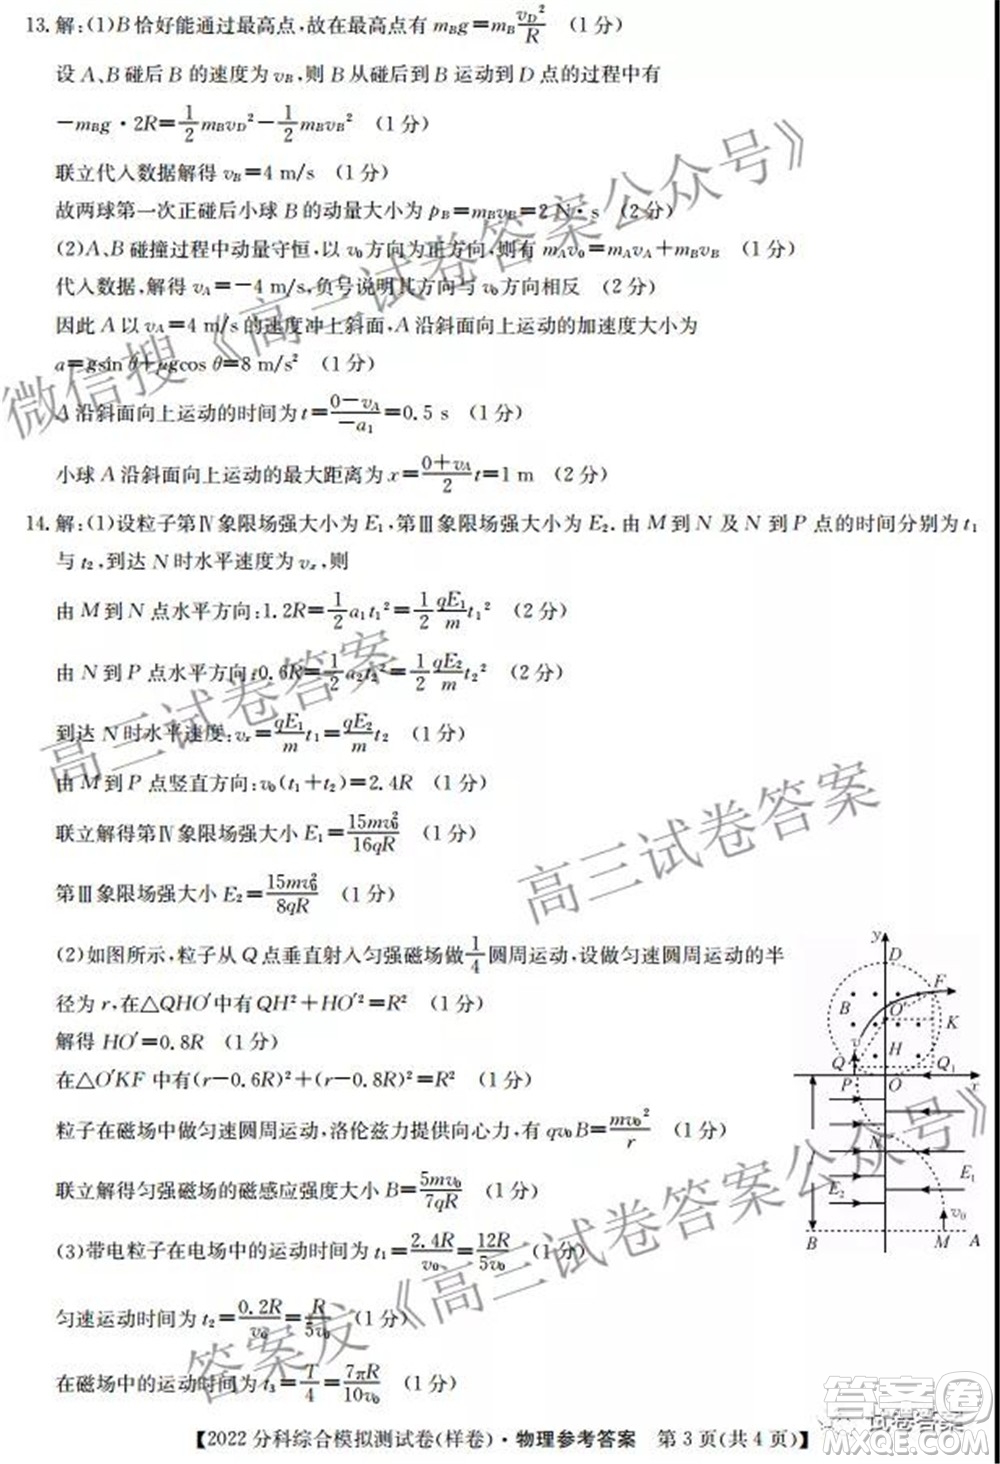 13.解:(1)B恰好能通过最高点,故在最高点有 m_Bg=m_B v_D²/R (1分)
设A、B碰后B的速度为v_B,则B从碰后到B运动到D点的过程中有
-m_Bg·2R=1/2 m_Bv_D²-1/2 m_Bv_B² (1分)
联立代入数据解得 v_B=4 m/s (1分)
故两球第一次正碰后小球B的动量大小为 p_B=m_Bv_B=2 N·s (2分)
(2)A、B碰撞过程中动量守恒,以v₀方向为正方向,则有 m_Av₀=m_Av_A+m_Bv_B (2分)
代入数据,解得 v_A=-4 m/s,负号说明其方向与v₀方向相反 (2分)
因此A以v_A=4 m/s的速度冲上斜面,A沿斜面向上运动的加速度大小为
a=gsin θ+μgcos θ=8 m/s² (1分)
A沿斜面向上运动的时间为 t=(0-v_A)/(-a₁)=0.5 s (1分)
小球A沿斜面向上运动的最大距离为 x=(0+v_A)/2 t=1 m (2分)
14.解:(1)设粒子第Ⅳ象限场强大小为E₁,第Ⅲ象限场强大小为E₂.由M到N及N到P点的时间分别为t₁
与t₂,到达N时水平速度为vₓ,则
由M到N点水平方向:1.2R=1/2 a₁t₁²=1/2 qE₁/m t₁² (2分)
由N到P点水平方向:0.6R=1/2 a₂t₂²=1/2 qE₂/m t₂² (2分)
到达N时水平速度:vₓ=qE₁/m t₁=qE₂/m t₂ (2分)
由M到P点竖直方向:v₀(t₁+t₂)=2.4R (1分)
联立解得第Ⅳ象限场强大小 E₁=15mv₀²/16qR (1分)
第Ⅲ象限场强大小 E₂=15mv₀²/8qR (1分)
(2)如图所示,粒子从Q点垂直射入匀强磁场做1/4圆周运动,设做匀速圆周运动的半
径为r,在△QHO′中有QH²+HO′²=R² (1分)
解得 HO′=0.8R (1分)
在△O′KF中有(r-0.6R)²+(r-0.8R)²=R² (1分)
粒子在磁场中做匀速圆周运动,洛伦兹力提供向心力,有 qv₀B=mv₀²/r (1分)
联立解得匀强磁场的磁感应强度大小 B=5mv₀/7qR (1分)
(3)带电粒子在电场中的运动时间为 t₁=2.4R/v₀=12R/5v₀ (1分)
匀速运动时间为 t₂=0.2R/v₀=R/5v₀ (1分)
在磁场中的运动时间为 t₃=T/4=7πR/10v₀ (1分)
y
D
F
B
O′
K
v
H
Q
Q₁
P
O
x
N
l
E₁
E₂
v₀
B
M
A
【2022分科综合模拟测试卷(样卷)·物理参考答案 第3页(共4页)】
微信搜《高三试卷答案公众号》
高三试卷答案
高三试卷答案
答案友《高三试卷答案公众号》
答案卷
试卷答案